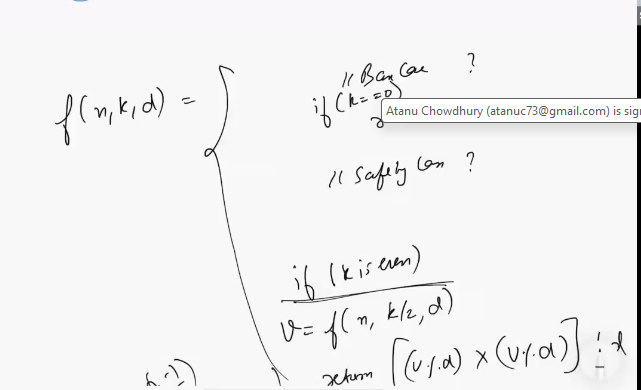 // Base Case ?
f(n, k, d) =
if (k==0)
Atanu Chowdhury (atanuc73@gmail.com) is sig
// Safety Case ?
if (k is even)
v = f(n, k/2, d)
return [(v%d) × (v%d)] % d